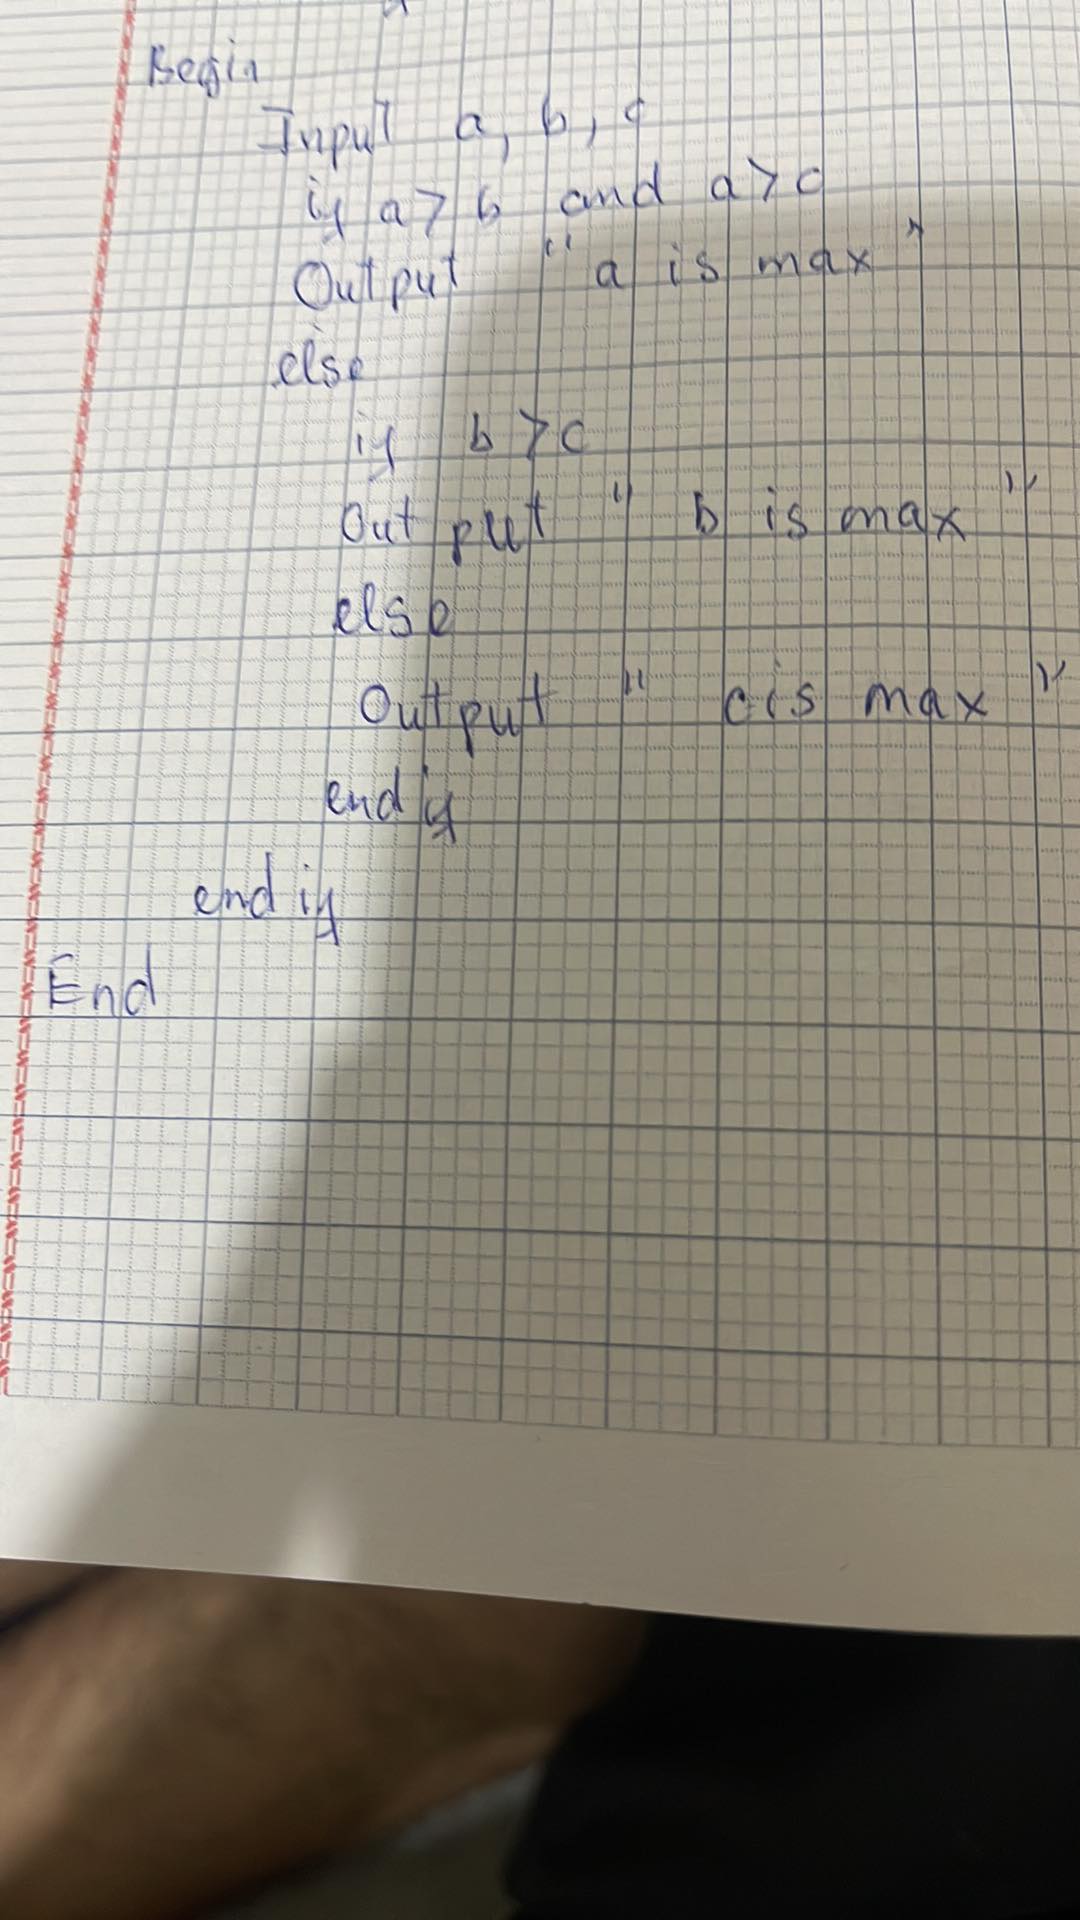 Begin
Input a, b, c
if a > b and a > c
Output "a is max"
else
if b > c
Output "b is max"
else
Output "c is max"
end if
end if
End